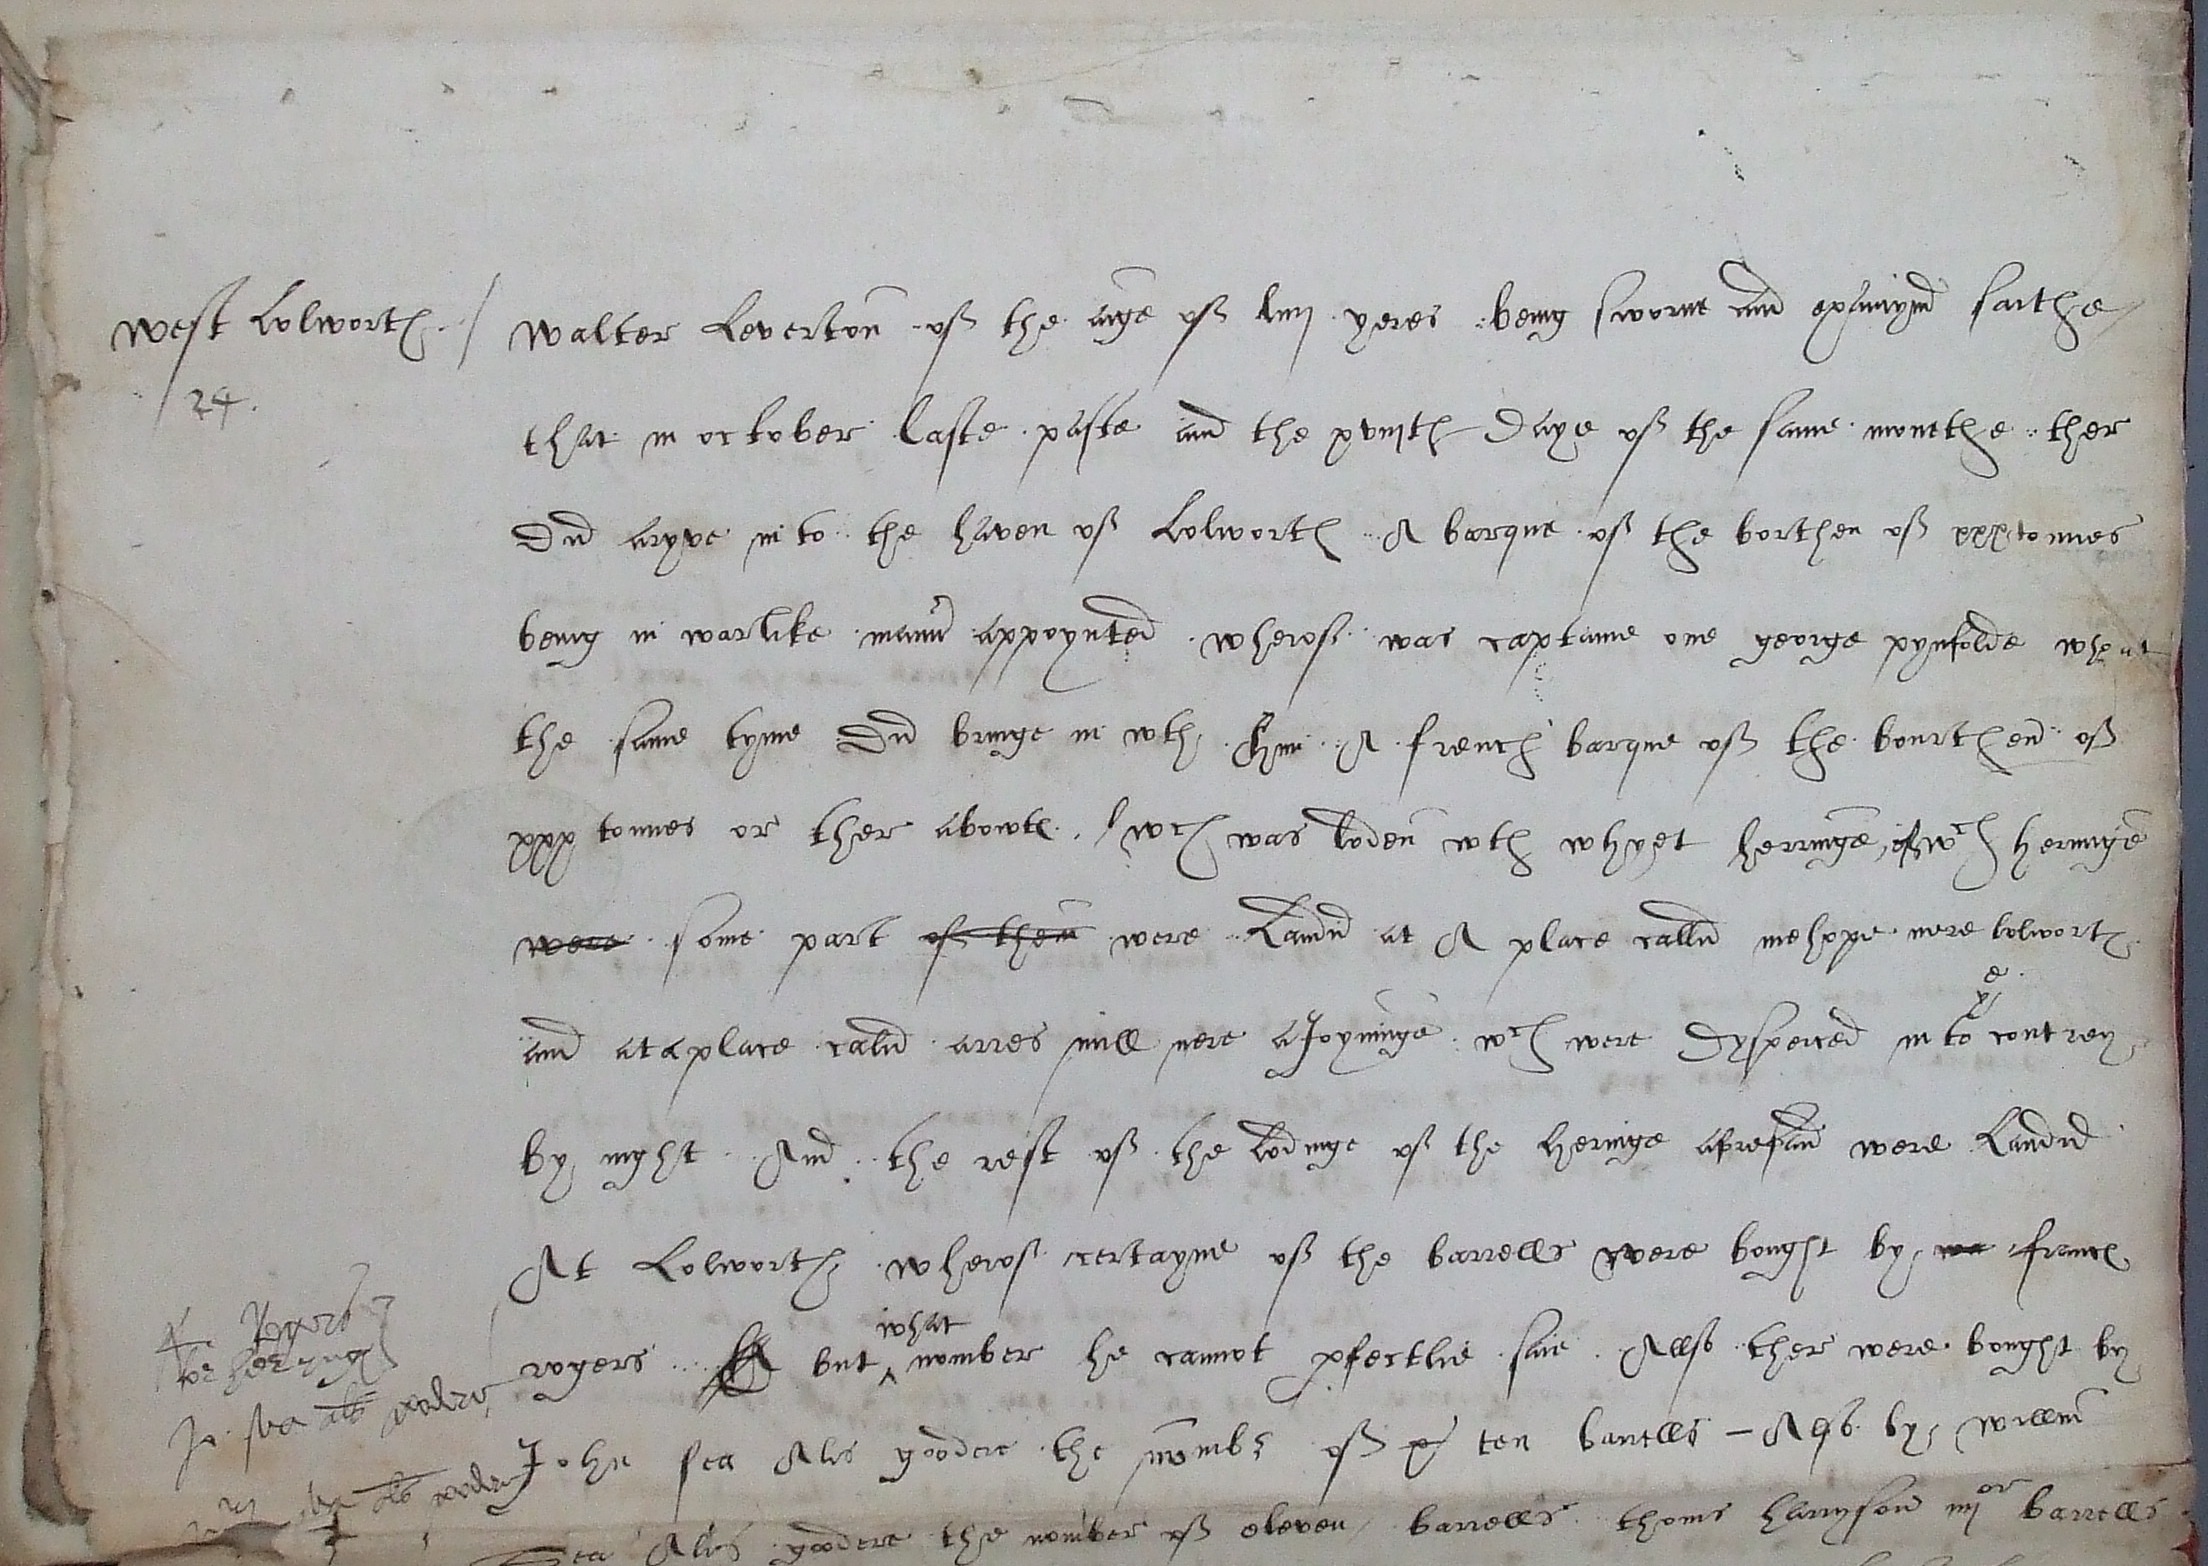 West Lulworth
24.
Walter Leverton of the aige of liiij yeres being sworne and examynd saithe
that in october laste paste and the xviijth daye of the same monethe ther
did aryve in to the haven of Lulworth A barque of the borthen of xxx tonnes
being in warlike mannr appoynted wherof was captaine one george pynfolde who at
the same tyme did bringe in wth him A french barque of the bourthen of
xxx tonnes or ther abowte wch was loden wth whyet herringe of wch heringe
were some part of them were Landid at A place callid mehope nere lulworth
and at a place calid arres mill nere aJoyninge wch were dysperced in to ye contrey
by nyght And the rest of the lodinge of the heringe aforesaid were Landid
At Lulworth wherof certayne of the barrells were bought by french
rogers but what nomber he cannot pfectlie saie Allso ther were bought by
John sea Alis goodere the nomber of ten barrells – Also by willm
Sea Alis goodere the nomber of eleven barrells thoms harryson iiijor barrells
Rogers
Jo. sea als
sea als